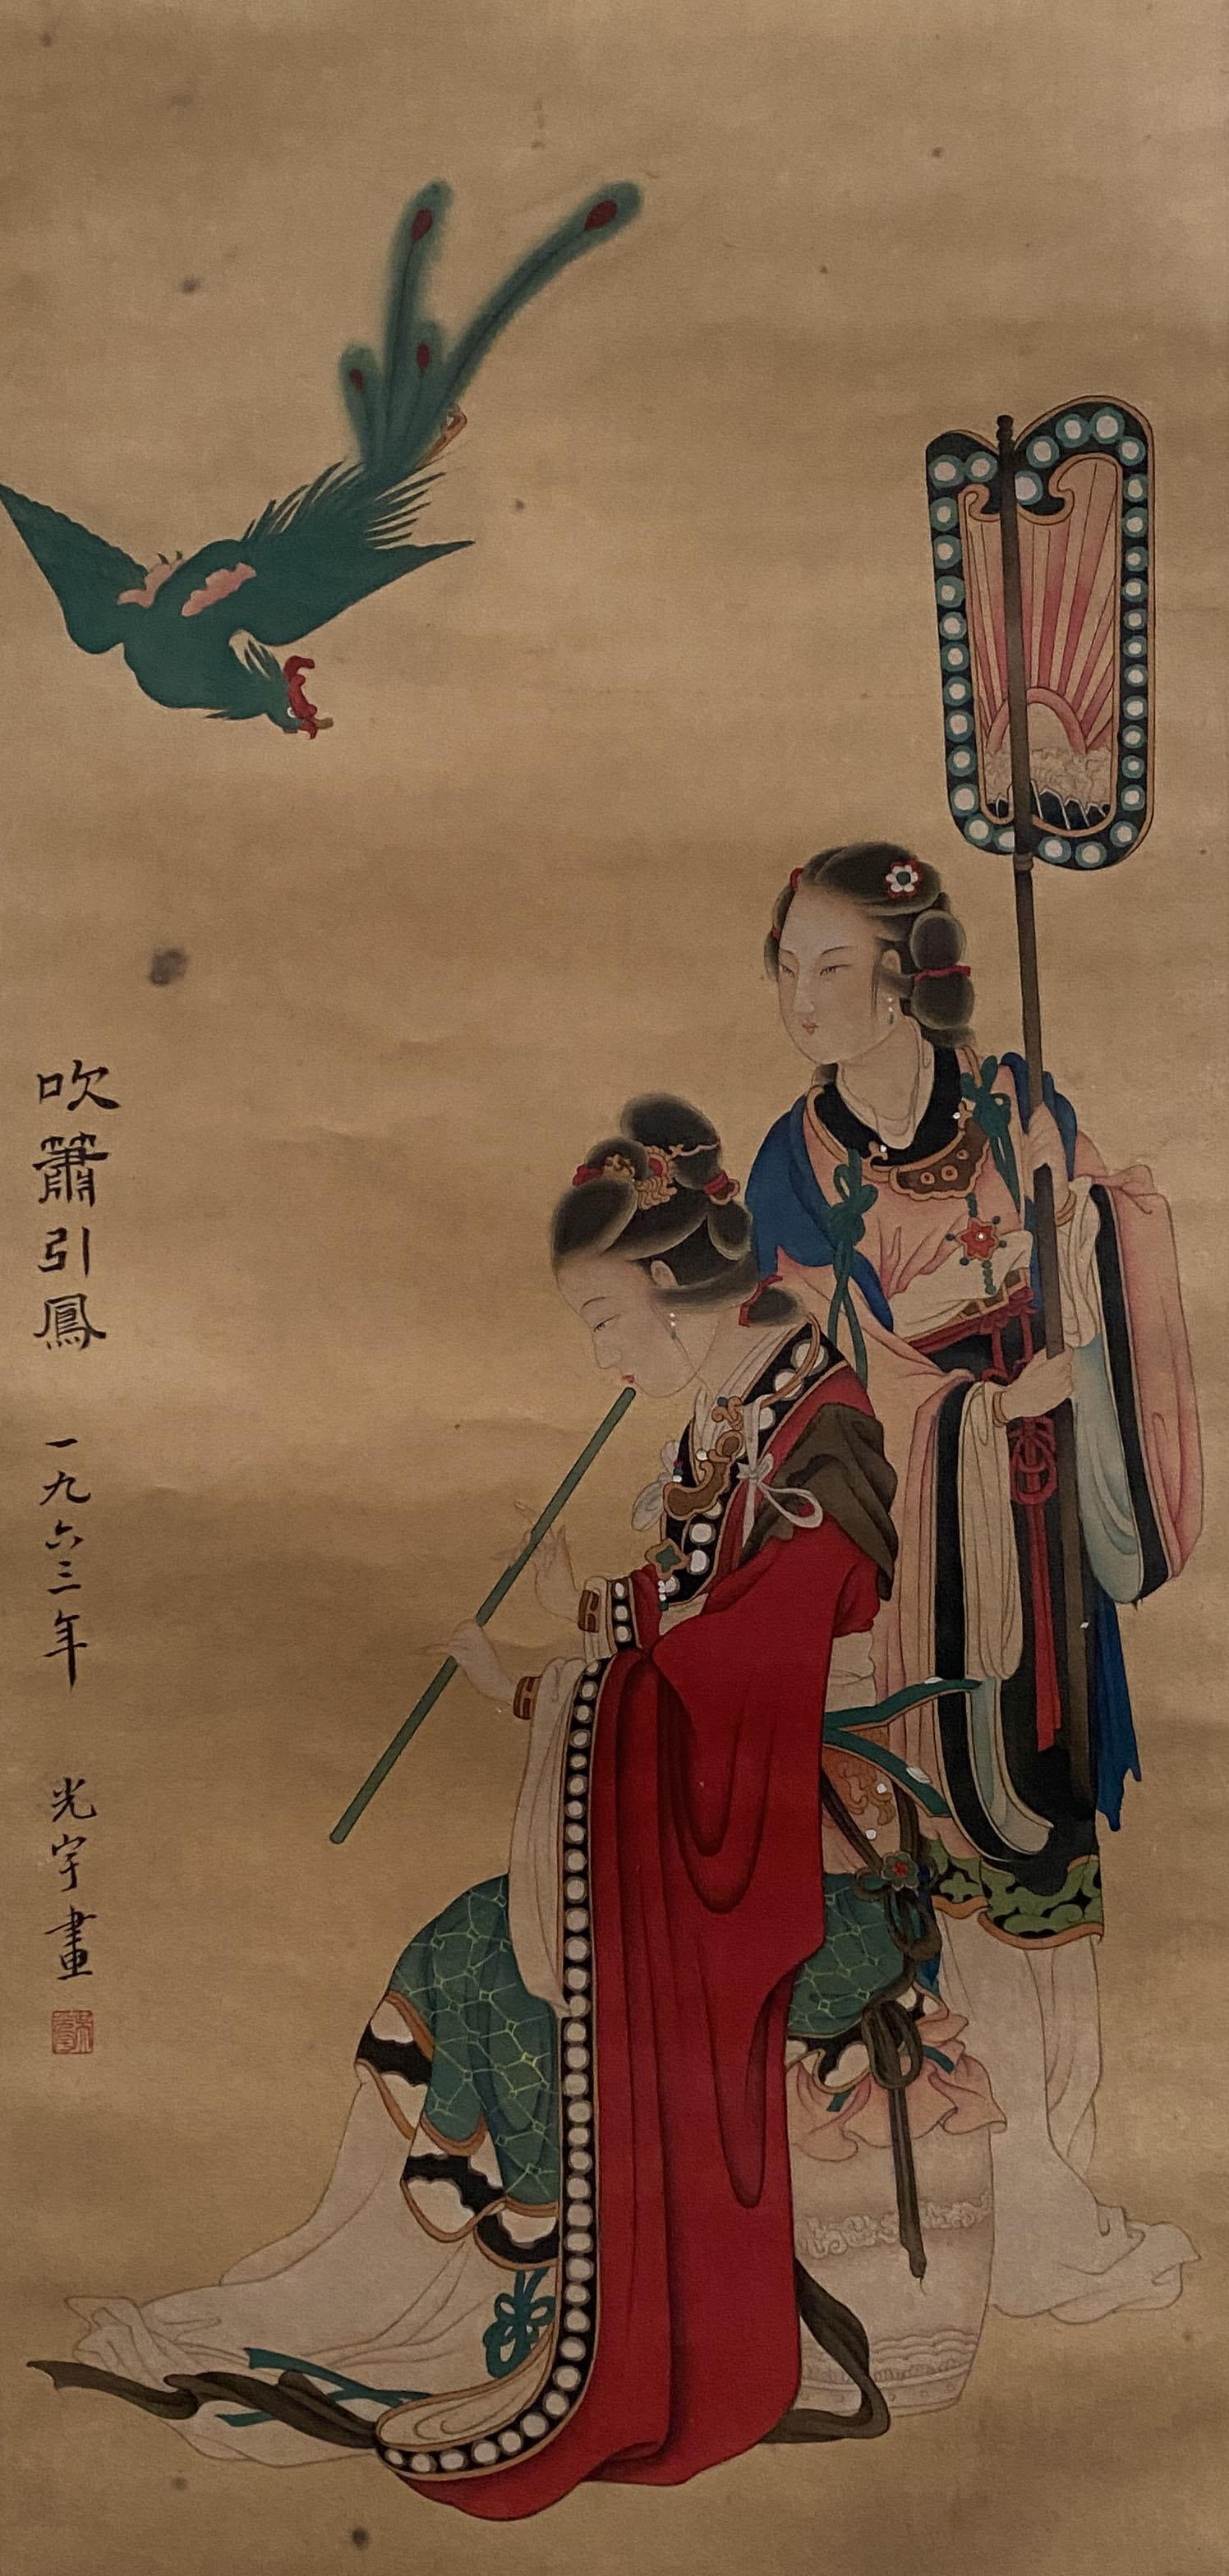 吹簫引鳳 一九六三年 光宇畫